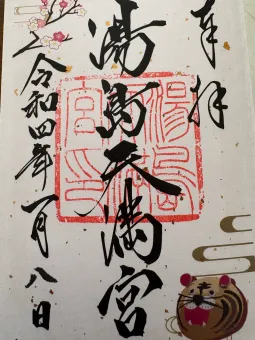 奉拝
湯島天満宮
令和四年一月八日